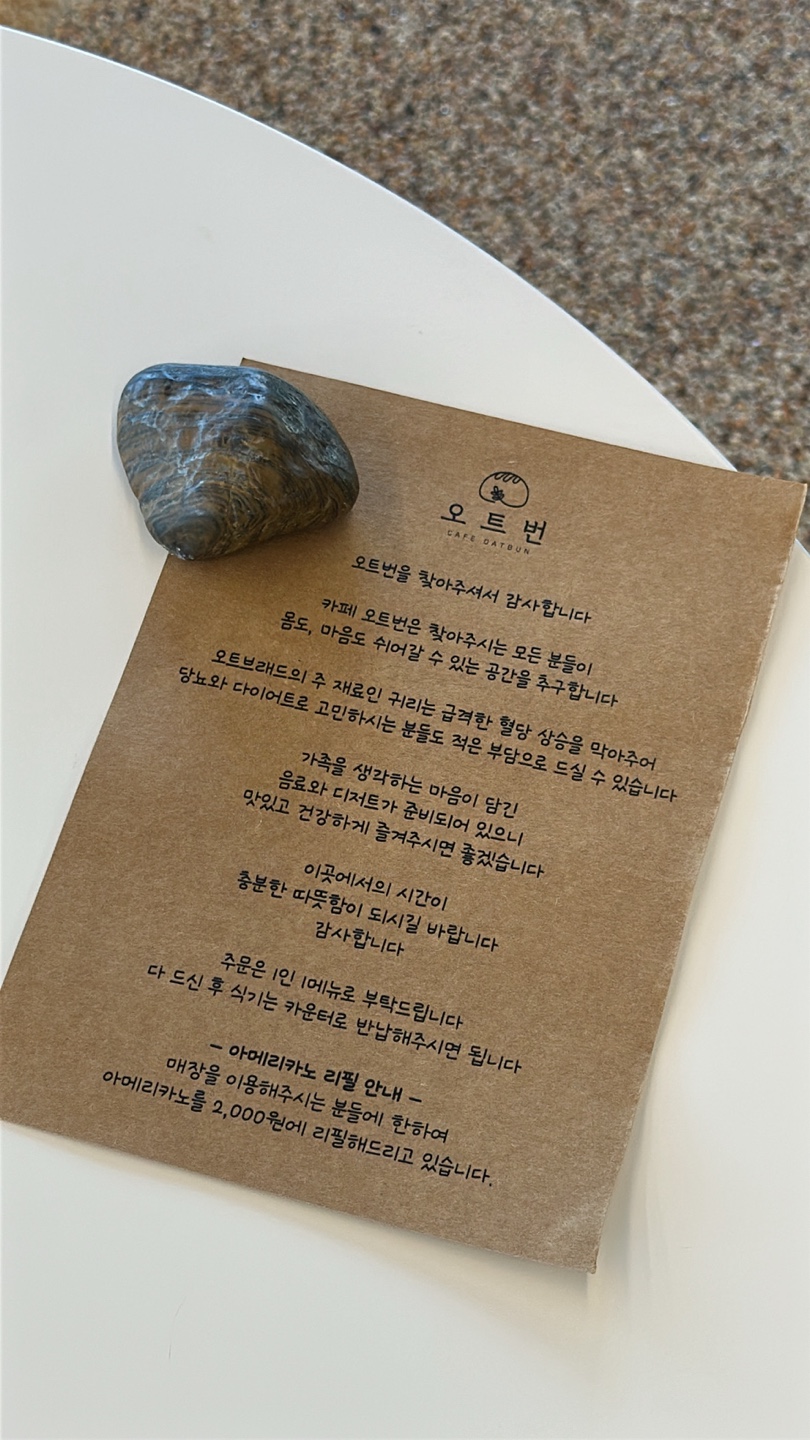 오트번
CAFE OATBUN
오트번을 찾아주셔서 감사합니다
카페 오트번은 찾아주시는 모든 분들이
몸도, 마음도 쉬어갈 수 있는 공간을 추구합니다
오트브래드의 주 재료인 귀리는 급격한 혈당 상승을 막아주어
당뇨와 다이어트로 고민하시는 분들도 적은 부담으로 드실 수 있습니다
가족을 생각하는 마음이 담긴
음료와 디저트가 준비되어 있으니
맛있고 건강하게 즐겨주시면 좋겠습니다
이곳에서의 시간이
충분한 따뜻함이 되시길 바랍니다
감사합니다
주문은 1인 1메뉴로 부탁드립니다
다 드신 후 식기는 카운터로 반납해주시면 됩니다
- 아메리카노 리필 안내 -
매장을 이용해주시는 분들에 한하여
아메리카노를 2,000원에 리필해드리고 있습니다.